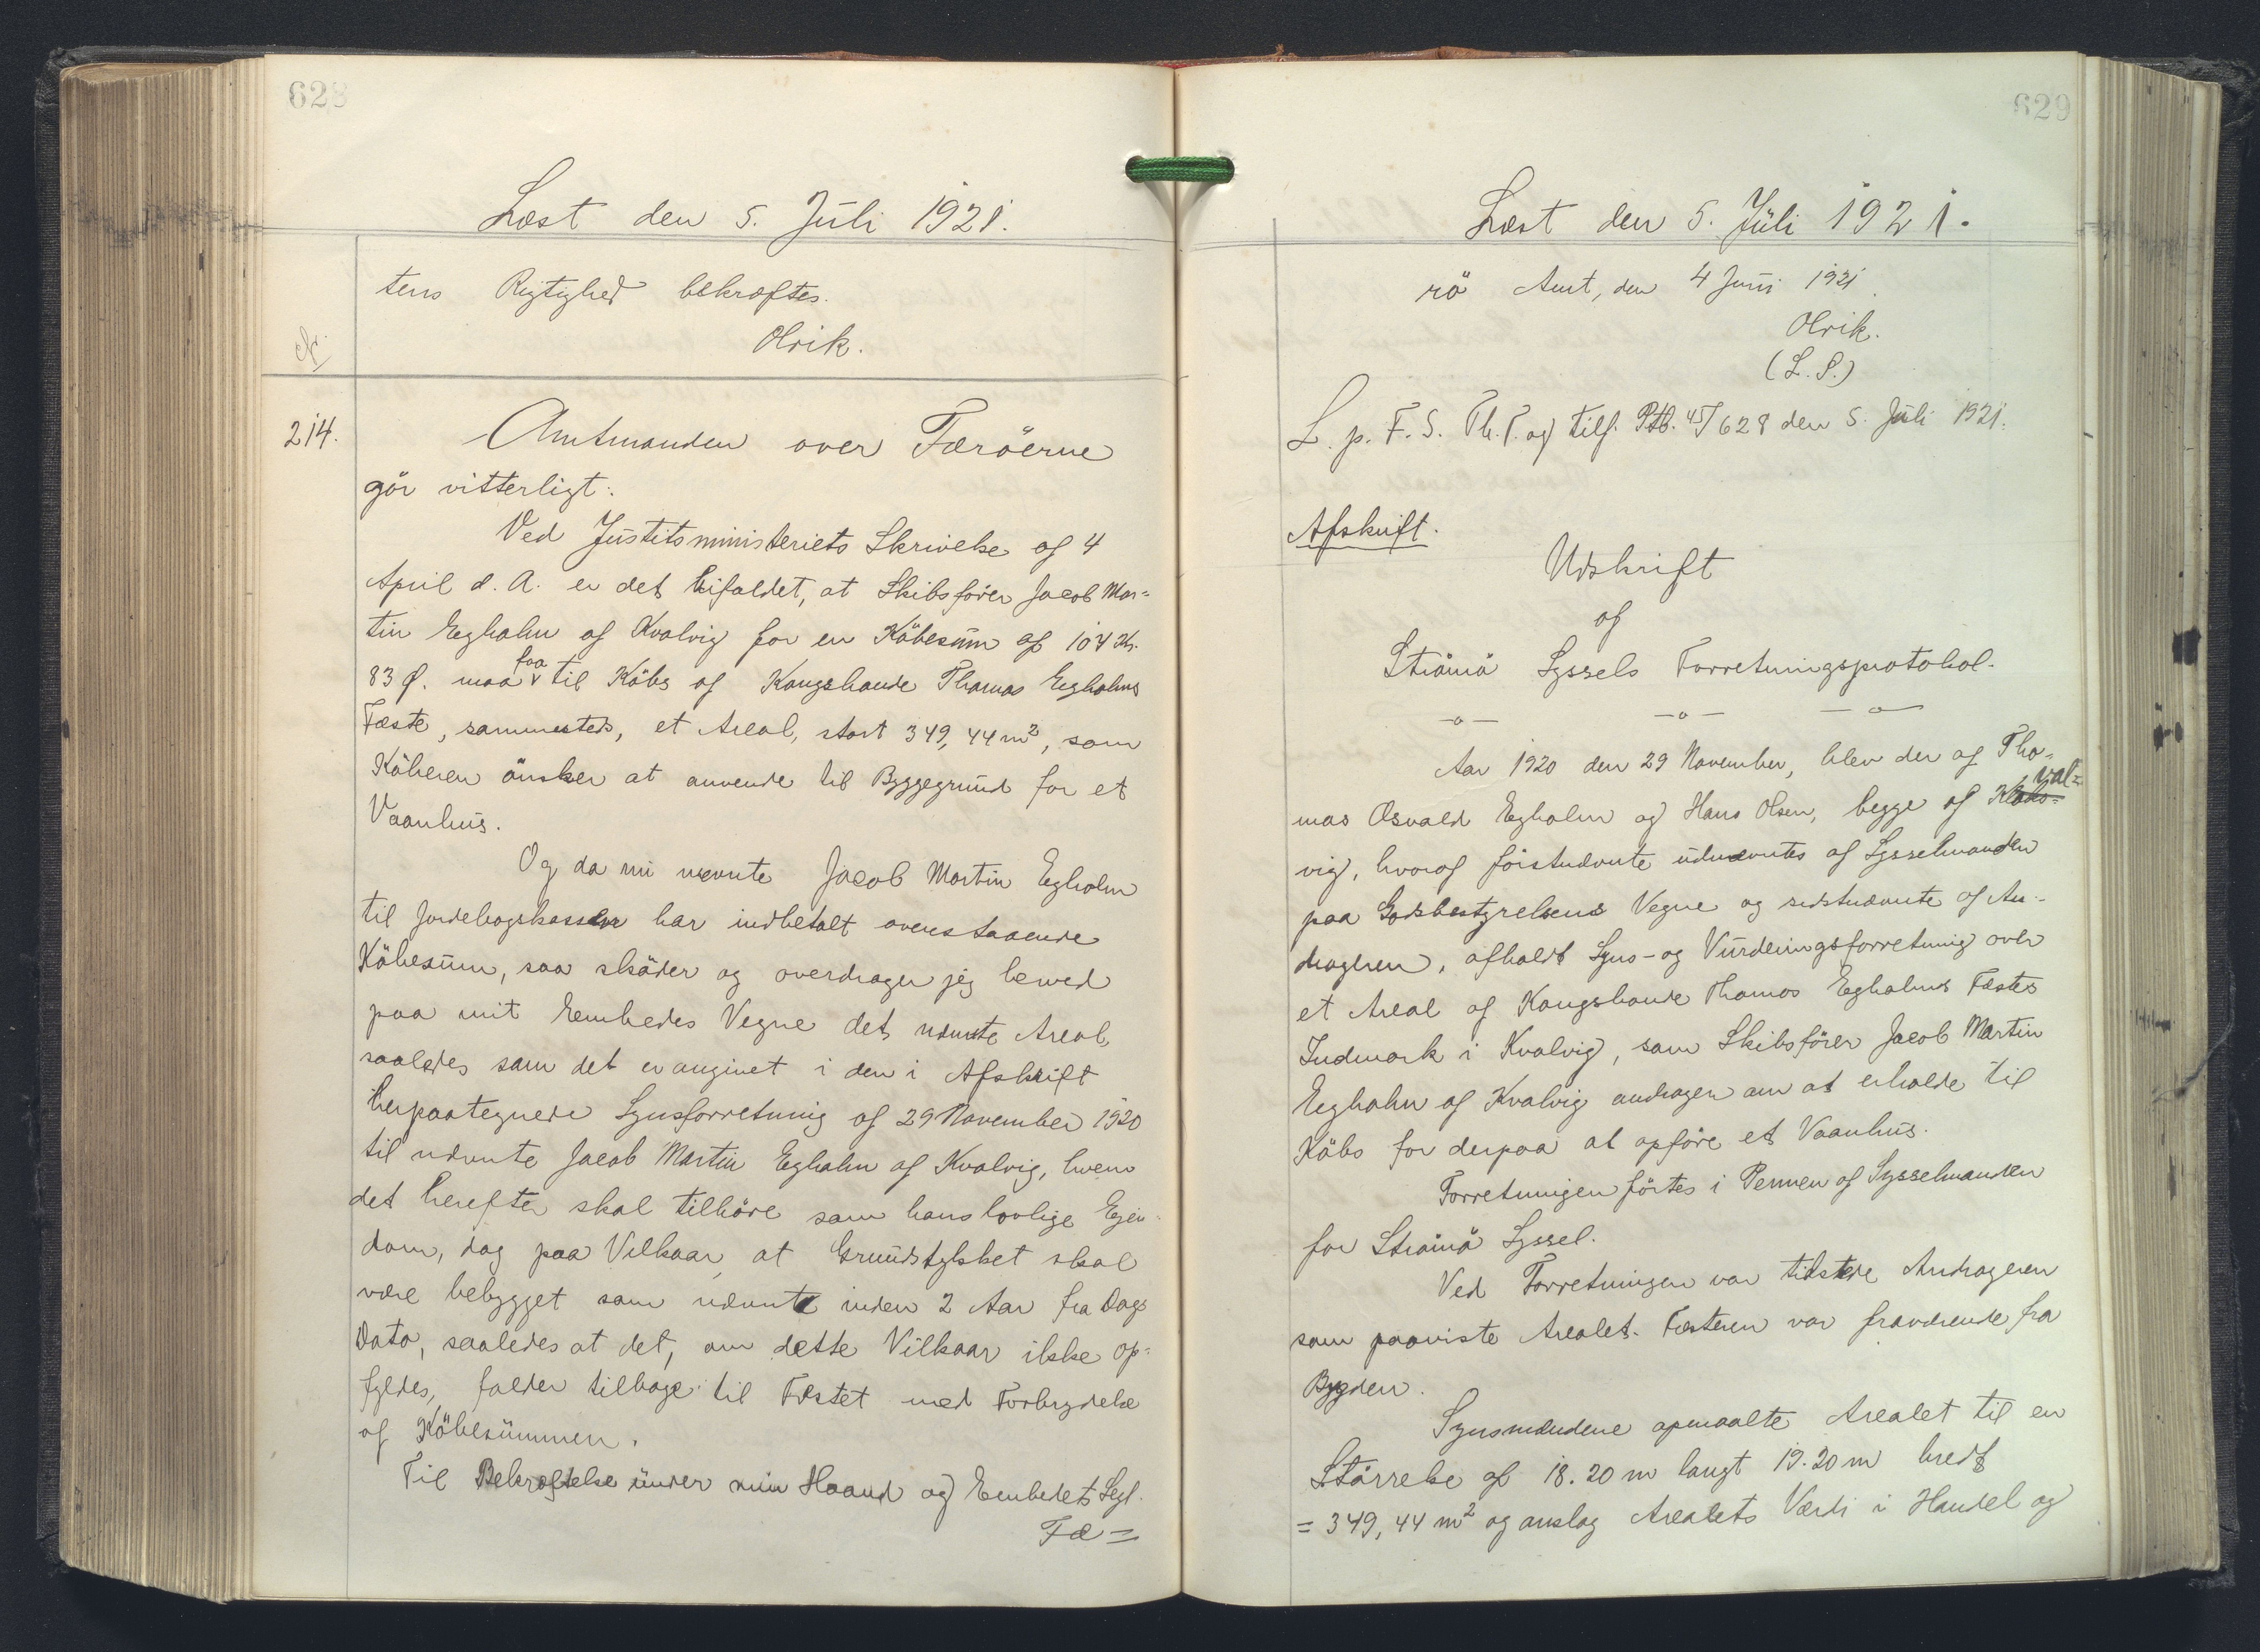 628
Læst den 5. Juli 1921.
tens Rigtighed bekræftes.
Olrik.
214.
Amtmanden over Færöerne
gör vitterligt:
Ved Justitsministeriets Skrivelse af 4
April d. A. er det bifaldet, at Skibsförer Jacob Mar=
tin Egholm af Kvalvig for en Köbesum af 104 Kr.
83 Ø. maa faa til Købs af Kongsbonde Thomas Egholms
Fæste, sammesteds, et Areal, stort 349,44 m², som
Köberen önsker at anvende til Byggegrund for et
Vaanhus.
Og da nu nævnte Jacob Martin Egholm
til Jordebogskassen har indbetalt ovenstaaende
Köbesum, saa skøder og overdrager jeg herved
paa mit Embedes Vegne det nævnte Areal,
saaledes som det er angivet i den i Afskrift
herpaategnede Synsforretning af 29 November 1920
til nævnte Jacob Martin Egholm af Kvalvig, hvem
det herefter skal tilhöre som hans lovlige Ejen-
dom, dog paa Vilkaar, at Grundstykket skal
være bebygget som nævnt inden 2 Aar fra Dags
Dato, saaledes at det, om dette Vilkaar ikke op=
fyldes, falder tilbage til Fæstet med Forbrydelse
af Köbesummen.
Til Bekræftelse under min Haand og Embedets Segl.
Fæ=
629
Læst den 5. Juli 1921.
rö Amt, den 4 Juni 1921.
Olrik.
(L. S.)
L. p. F. S. Th. T. og tilf. Ptb. 628 den 5. Juli 1921.
Afskrift.
Udskrift
af
Strömö Syssels Forretningsprotokol.
-o- -o- -o-
Aar 1920 den 29 November, blev der af Tho-
mas Osvald Egholm og Hans Olsen, begge af Kval=
vig, hvoraf förstnævnte udnævntes af Sysselmanden
paa Godsbestyrelsens Vegne og sidstnævnte af An-
drageren, afholdt Syns- og Vurderingsforretning over
et Areal af Kongsbonde Thomas Egholms Fæstes
Indmark i Kvalvig, som Skibsförer Jacob Martin
Egholm af Kvalvig andrager om at erholde til
Købs for derpaa at opföre et Vaanhus.
Forretningen förtes i Pennen af Sysselmanden
for Strömö Syssel.
Ved Forretningen var tilstede Andrageren
som paaviste Arealet. Fæsteren var fraværende fra
Bygden.
Synsmændene opmaalte Arealet til en
Störrelse af 18.20 m langt 19.20 m bredt
= 349,44 m² og anslog Arealets Værdi i Handel og